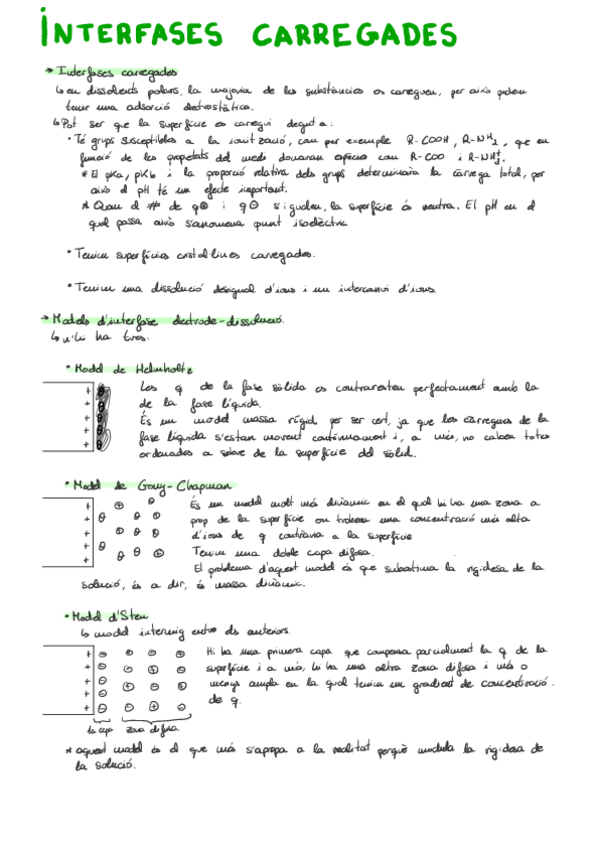 INTERFASES CARREGADES
→ Interfases carregades
↳ en dissolvents polars, la majoria de les substàncies es carreguen, per això podem
tenir una adsorció electrostàtica.
↳ Pot ser que la superfície es carregui degut a:
• Té grups susceptibles a la ionització, com per exemple R-COOH, R-NH2, que en
funció de les propietats del medi donaran espècies com R-COO i R-NH3+.
* El pKa, pKb i la proporció relativa dels grups determinarà la càrrega total, per
això el pH té un efecte important.
* Quan el nº de q⊕ i q⊖ s'igualen, la superfície és neutra. El pH en el
qual passa això s'anomena punt isoelèctric
• Tenim superfícies cristal·lines carregades.
• Tenim una dissolució desigual d'ions i un intercanvi d'ions.
→ Models d'interfase electrode-dissolució.
↳ n'hi ha tres:
• Model de Helmholtz
Les q de la fase sòlida es contraresten perfectament amb la
de la fase líquida.
És un model massa rígid, per ser cert, ja que les càrregues de la
fase líquida s'estan movent contínuament i, a més, no caben totes
ordenades a sobre de la superfície del sòlid.
• Model de Gouy-Chapman
És un model molt més dinàmic en el qual hi ha una zona a
prop de la superfície on trobem una concentració més alta
d'ions de q contrària a la superfície
Tenim una doble capa difosa.
El problema d'aquest model és que subestima la rigidesa de la
solució, és a dir, és massa dinàmic.
• Model d'Stern
↳ model intermig entre els anteriors.
Hi ha una primera capa que compensa parcialment la q de la
superfície i a més, hi ha una altra zona difosa i més o
menys ampla en la qual tenim un gradient de concentració
de q.
1a capa zona difosa
* aquest model és el que més s'apropa a la realitat perquè modula la rigidesa de
la solució.